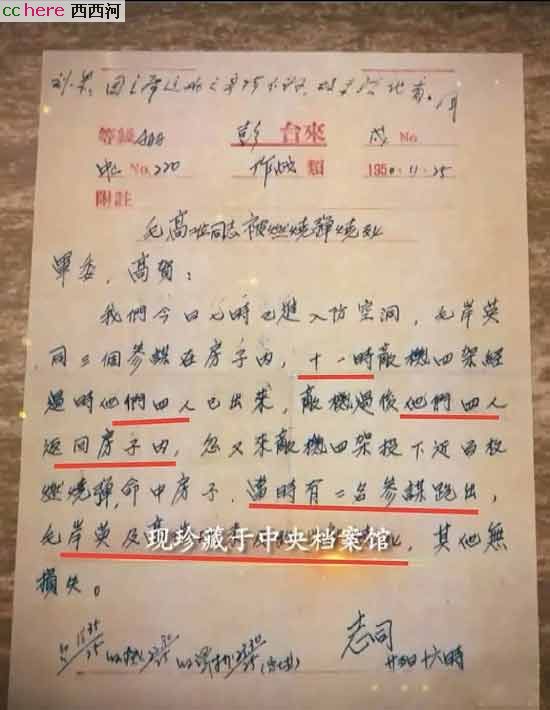 cchere 西西河
刘、
等級 AAA 彭台來 戌 No.
No. 220 作战類 1950.11.25
附註
毛高二同志被燃燒彈燒死
軍委,高賀:
我們今日七時已進入防空洞,毛岸英
同三個參謀在房子内,十一時敵機四架經
過時他們四人已出來,敵機過後他們四人
返回房子内,忽又來敵機四架投下近百枚
燃燒彈,命中房子,當時有二名參謀跑出,
毛岸英及高
现珍藏于中央档案馆
,其他無
損失。
志司
廿五日十六時